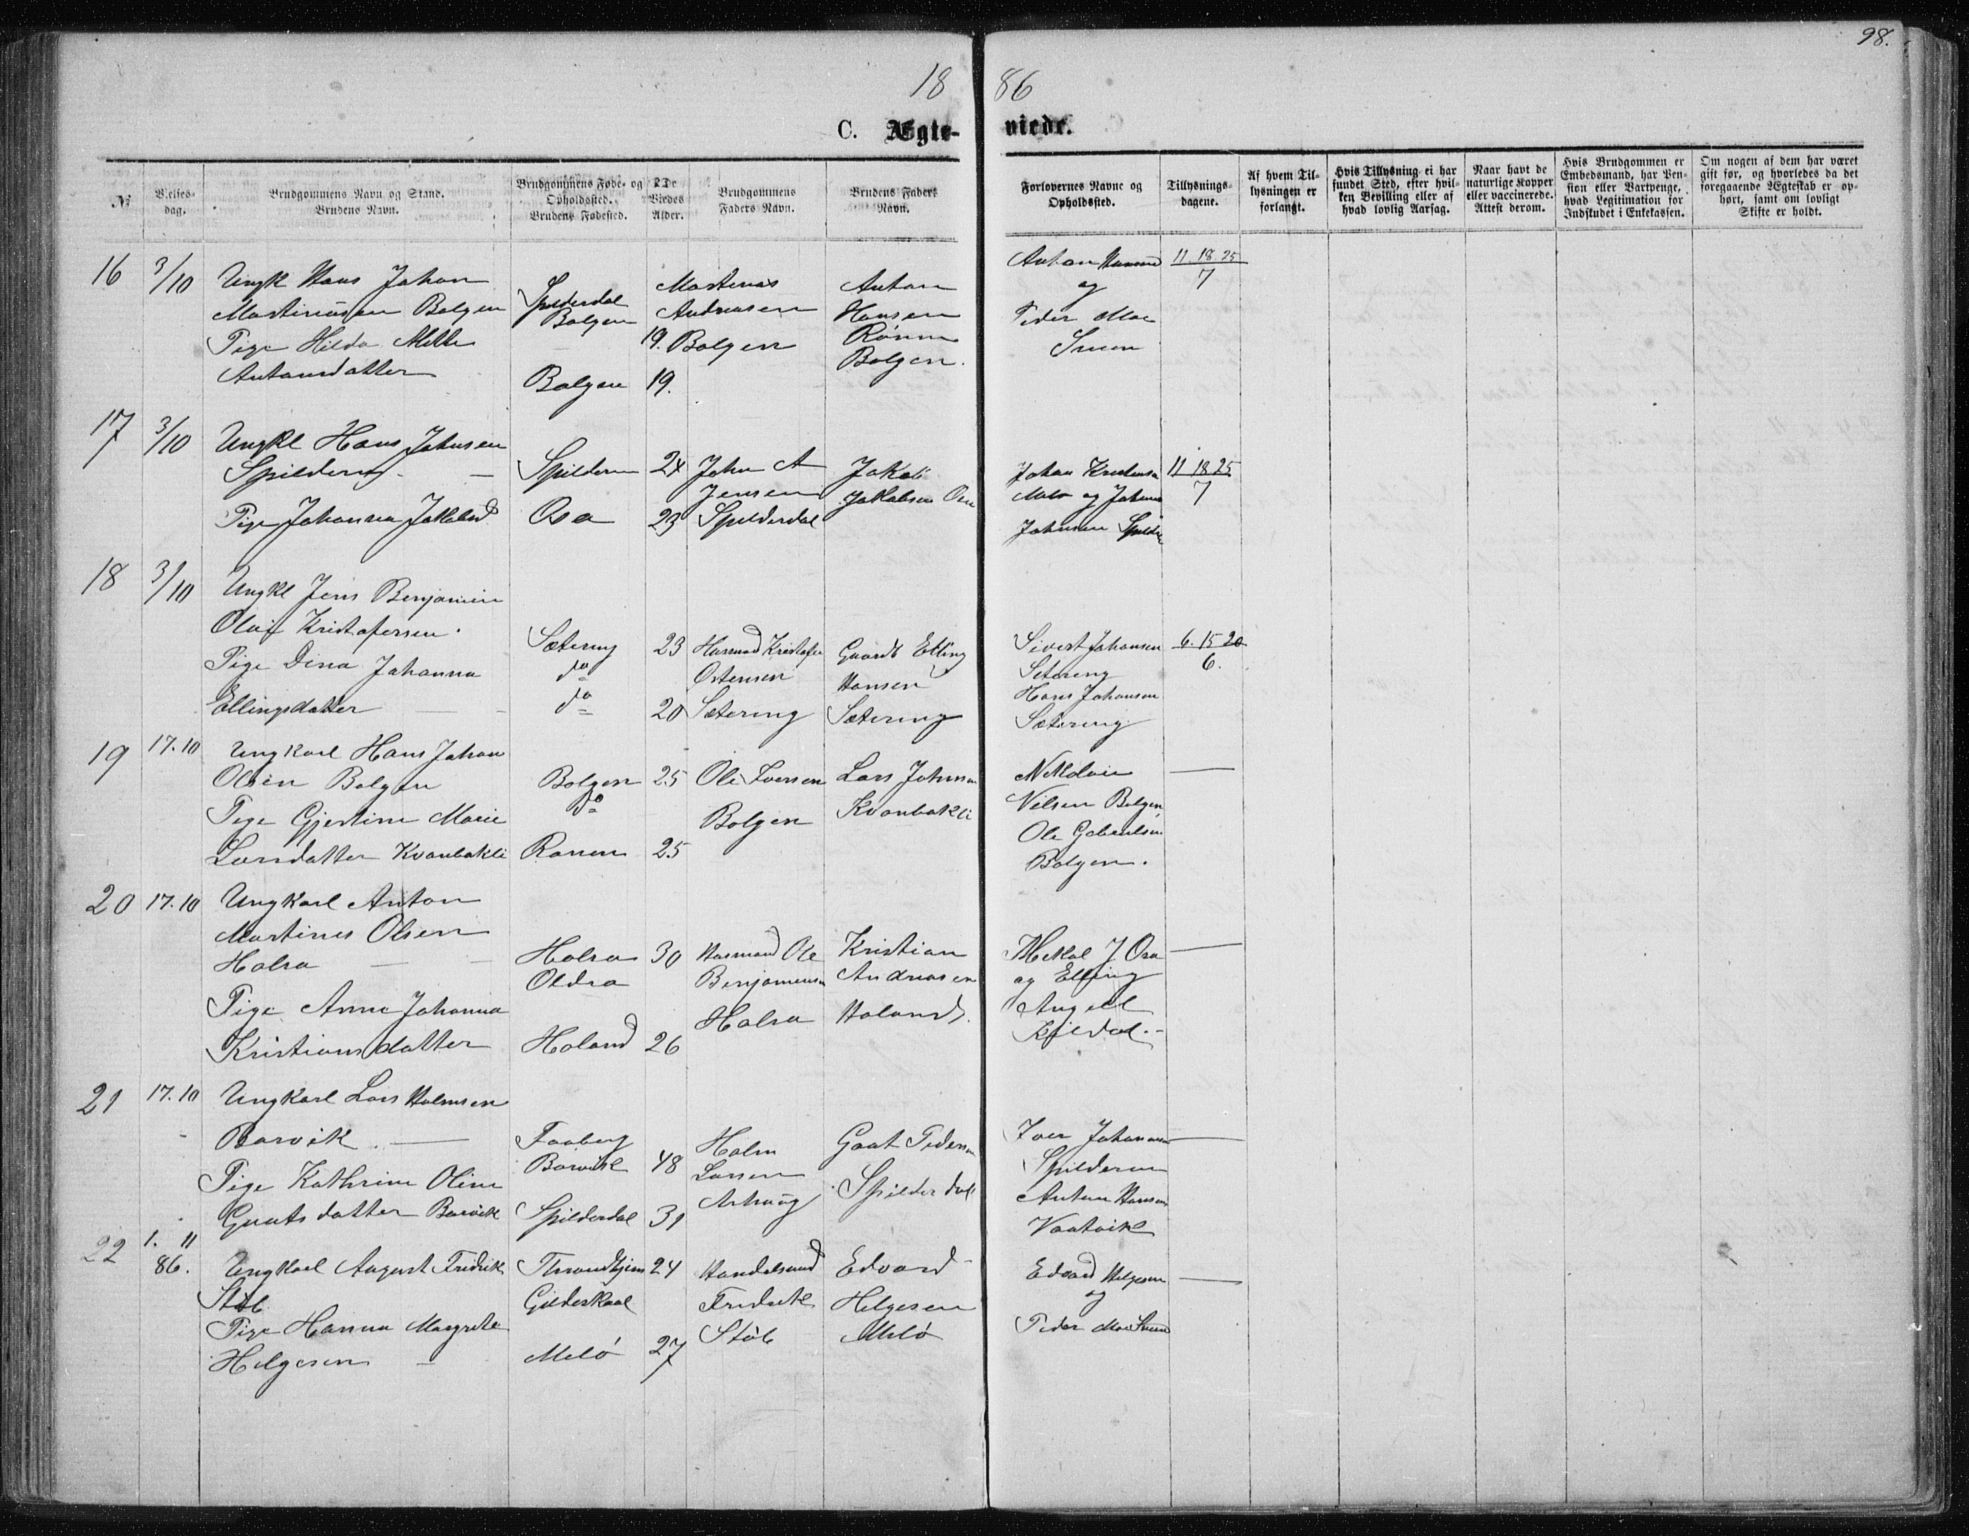 98.
18 86
C. Ægte- viede.
№
Vielses-dag.
Brudgommens Navn og Stand.
Brudens Navn.
Brudgommens Føde- og Opholdssted.
Brudens Fødested.
De Viedes Alder.
Brudgommens Faders Navn.
Brudens Faders Navn.
Forlovernes Navne og Opholdssted.
Tillysnings-dagene.
Af hvem Til-lysningen er forlangt.
Hvis Tillysning ei har fundet Sted, efter hvil-ken Bevilling eller af hvad lovlig Aarsag.
Naar havt de naturlige Kopper eller vaccinerede. Attest derom.
Hvis Brudgommen er Embedsmand, har Pen-sion eller Vartpenge, hvad Legitimation for Indskudet i Enkekassen.
Om nogen af dem har været gift før, og hvorledes da det foregaaende Ægteskab er op-hørt, samt om lovligt Skifte er holdt.
16 3/10 Ungk Hans Johan
Martinusen Bolgen
Pige Hilda Mille
Antonsdatter
Spilderdal
Bolgen 19.
Bolgen 19.
Martinus
Andreasen
Bolgen
Anton
Hansen
Bolgen.
Anton Hansen
og
Peder Moe
11 18 25
7
17 3/10 Ungkl Hans Johnsen
Spildern
Pige Johanna Jakobsd
Spildern 24
Osa 23
John A
Jensen
Spilderdal
Jakob
Jakobsen Osa
Johan
og
Johnsen
11 18 25
7
18 3/10 Ungkl Jens Benjamin
Olai Kristofersen.
Pige Dina Johanna
Ellingsdatter
Sætering 23
do
do 20
Husmand Kristofer
Ostensen
Sætering
Gaardb Elling
Hansen
Sætering
Sivert Johansen
Setering
Hans Johansen
Sætering
6. 15 20
6.
19 17.10 Ungkarl Hans Johan
Olsen Bolgen
Pige Gjertine Marie
Larsdatter Kvanbakli
Bolgen 25
do
Ranen 25
Ole Iversen
Bolgen
Lars Johnsen
Kvanbakli
Nikolai
Nilsen Bolgen
Ole
Bolgen.
20 17.10 Ungkarl Anton
Martines Olsen
Halsa
Pige Anne Johanna
Kristiansdatter
Halsa 30
Oldra
Holand 26
Husmand Ole
Benjaminsen
Halsa
Kristian
Andreasen
Holand.
Mekal J Osa
og Elling
Angell
Kildal.
21 17.10 Ungkarl Lars Holmsen
Barvik.
Pige Kathrine Oline
Gautsdatter Barvik
Faaberg
Barvik 48
Spilderdal 31
Holm
Larsen
Gaut Pedersen
Spilderdal
Iver Johansen
Spilderen
Anton Hansen
Vaatvik
22 1. 11 86. Ungkarl August Fredrik
Støb
Pige Hanna Margrete
Helgesen
Throndhjem 24
Gildeskaal
Melø 27
Handelsmand
Fredrik
Støb
Edvard
Helgesen
Melø
Edvard Helgesen
og
Peder Moe